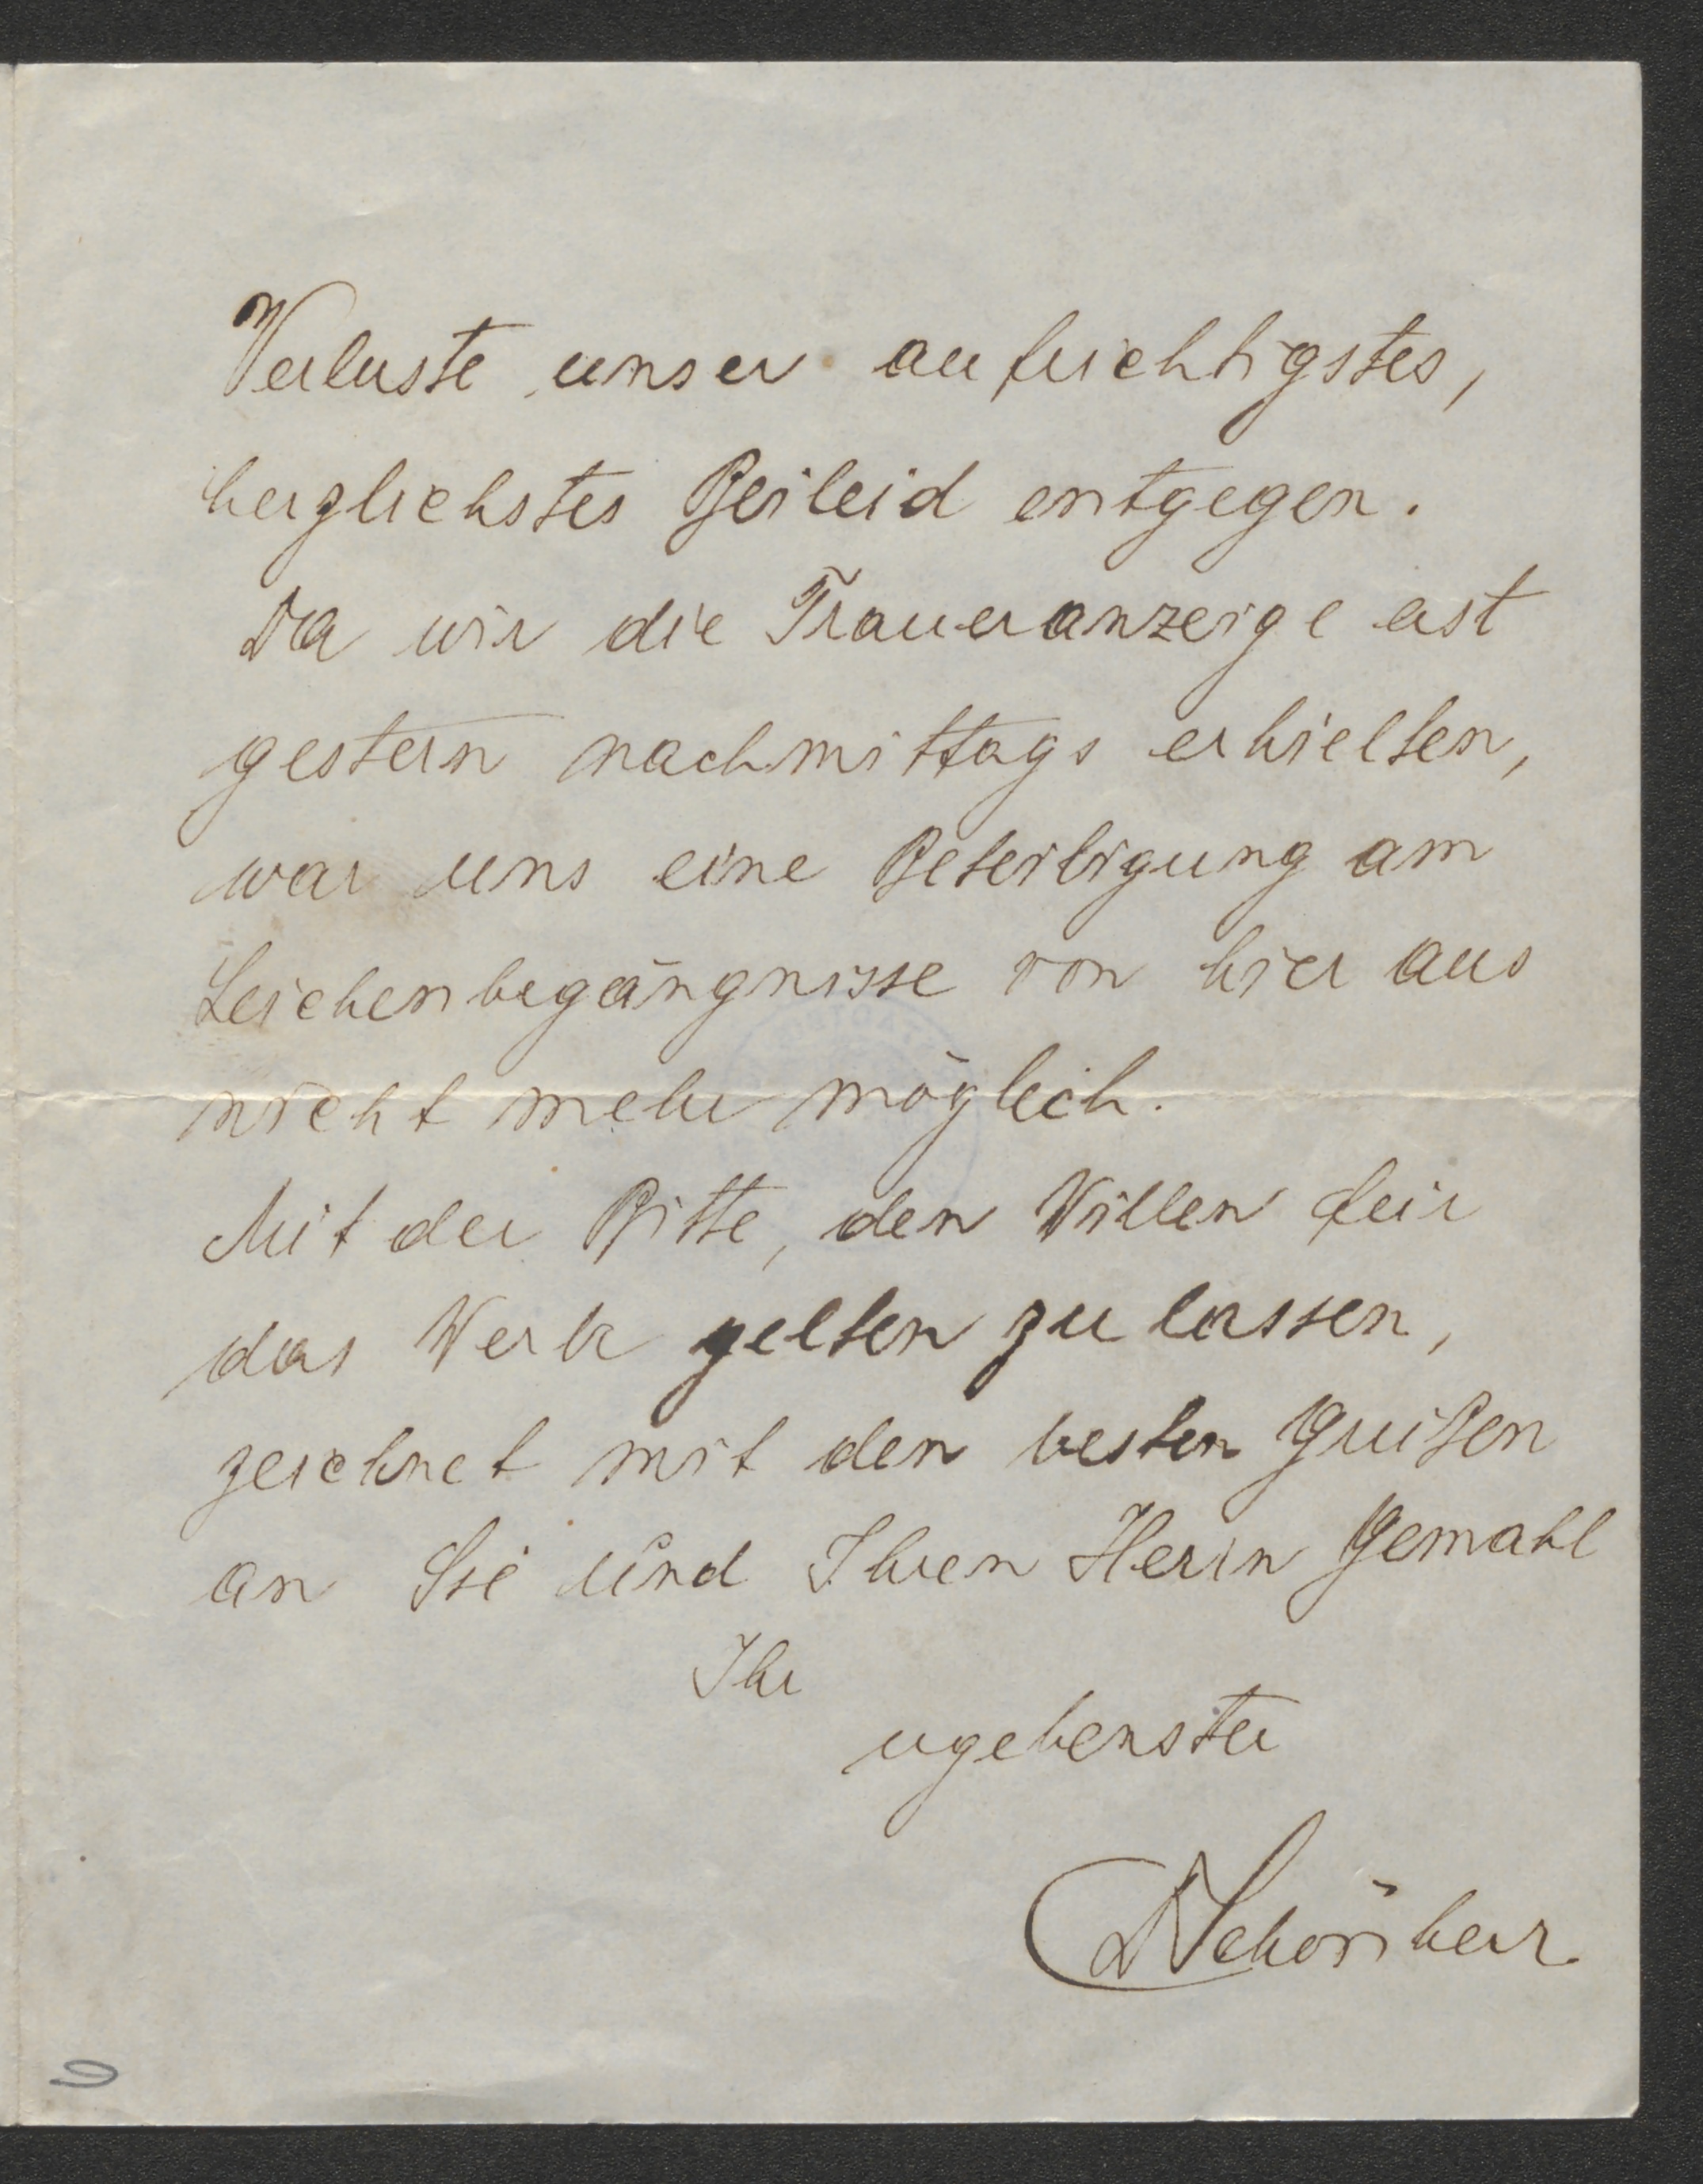 Verluste unser aufrichtigstes,
herzlichstes Beileid entgegen.
Da wir die Traueranzeige erst
gestern nachmittags erhielten,
war uns eine Beteiligung am
Leichenbegängnisse von hier aus
nicht mehr möglich.
Mit der Bitte, den Willen für
das Werk gelten zu lassen,
zeichnet mit den besten Grüßen
an Sie und Ihren Herrn Gemahl
Ihr
ergebenster
Schönherr